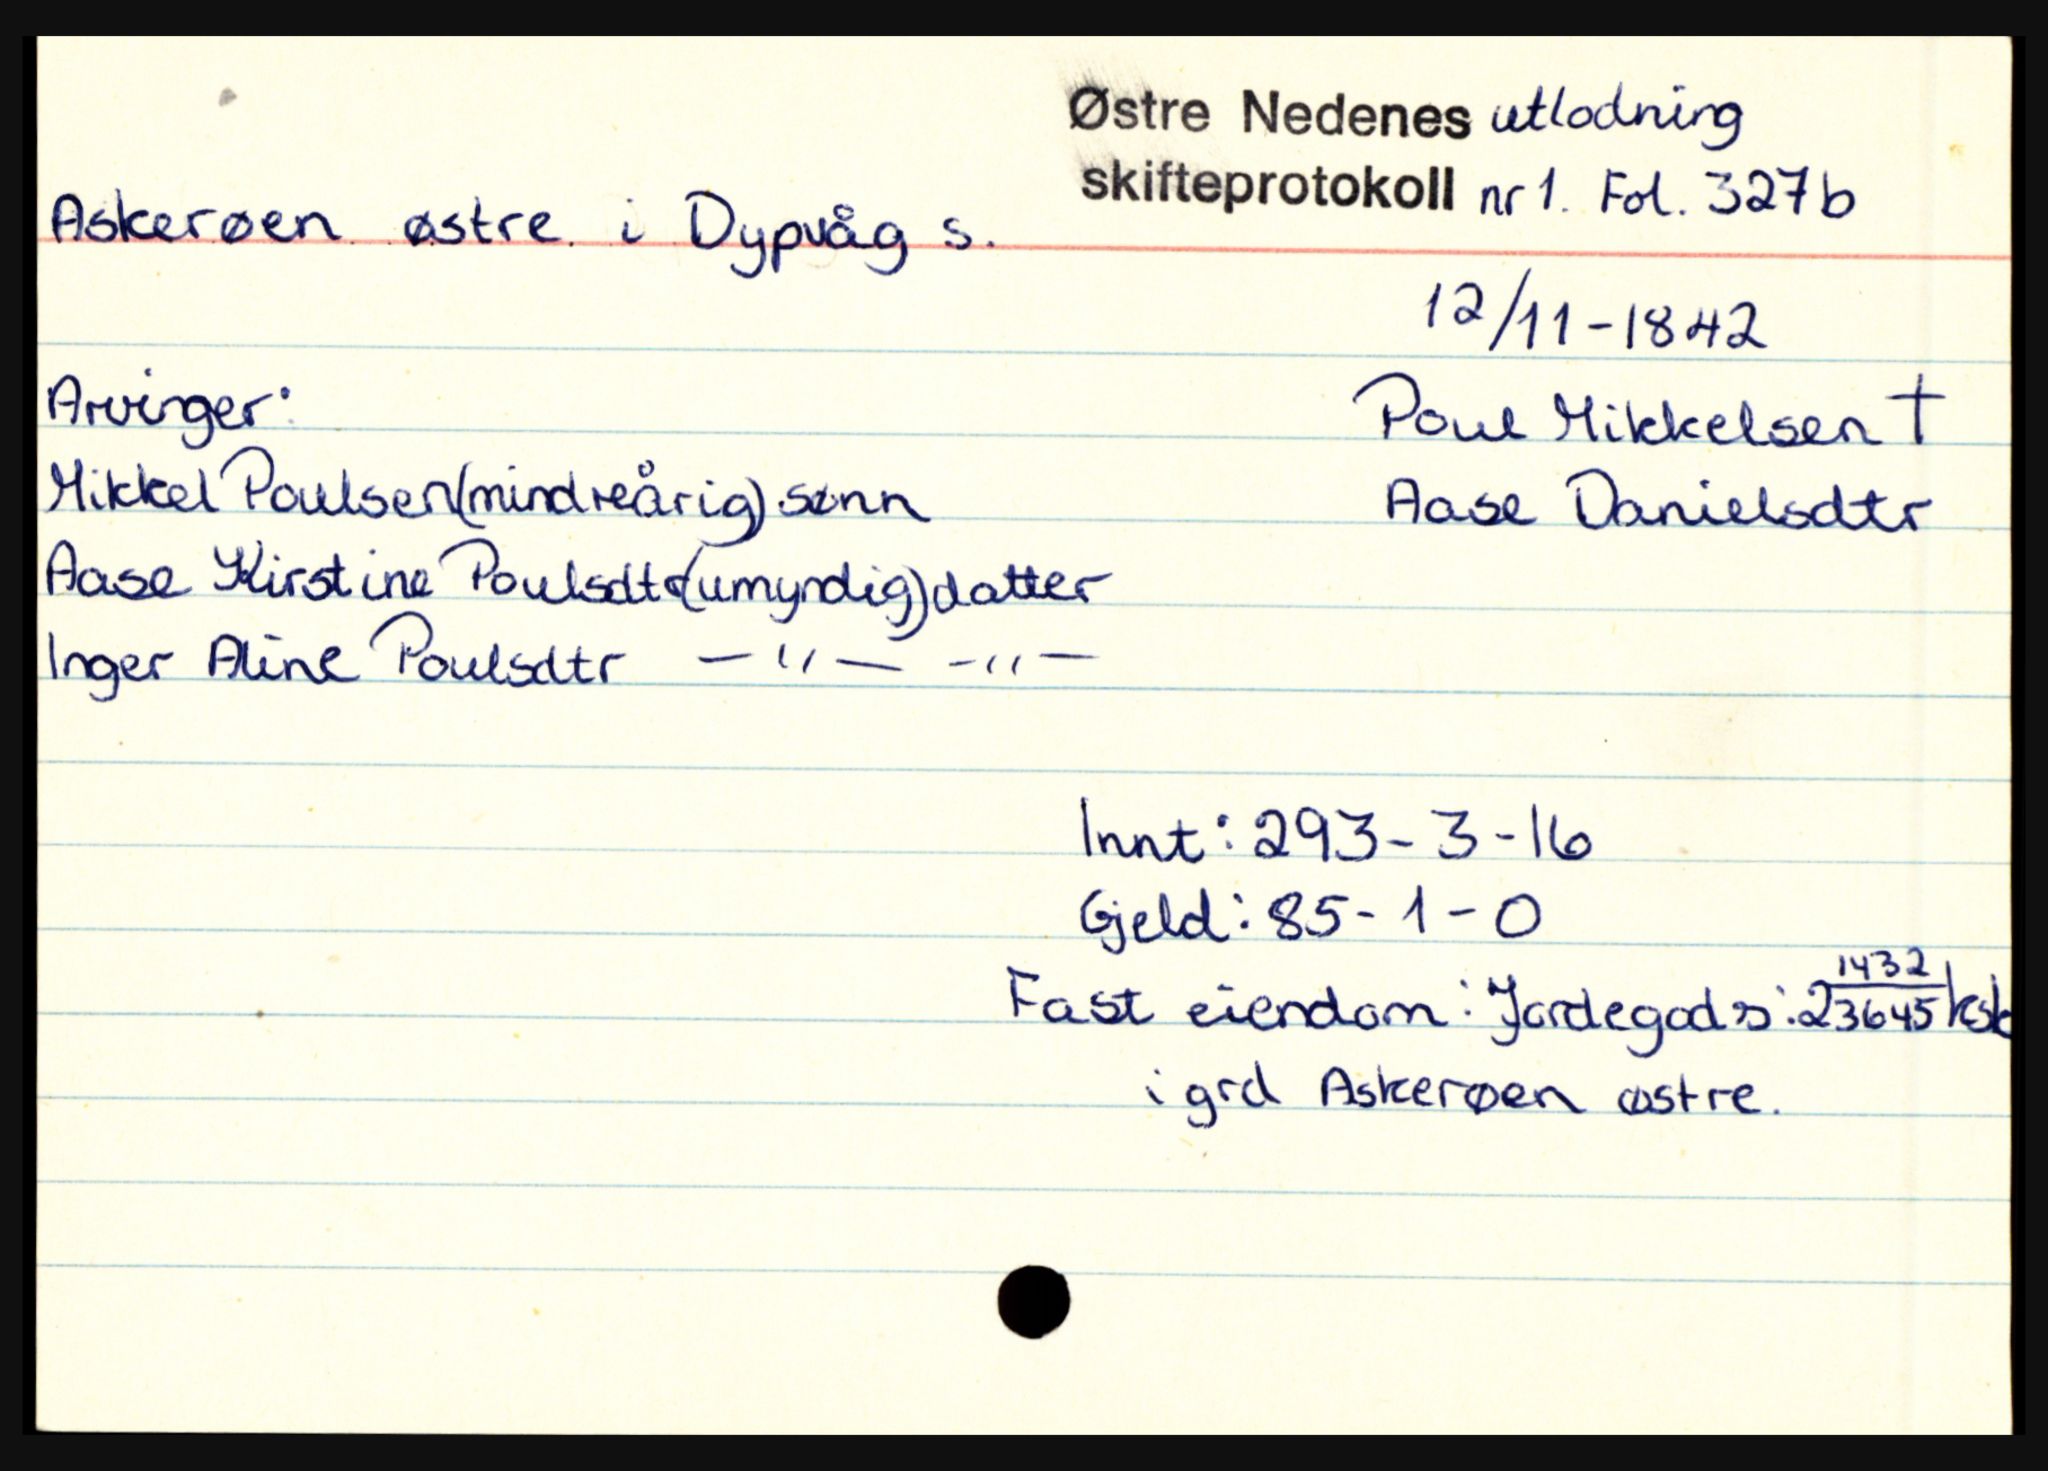 Østre Nedenes utlodning
skifteprotokoll nr 1. Fol. 327b
Askerøen østre i Dypvåg s.
12/11-1842
Arvinger:
Poul Mikkelsen †
Mikkel Poulsen (mindreårig) sønn
Aase Danielsdtr
Aase Kirstine Poulsdtr (umyndig) datter
Inger Aline Poulsdtr —〃— —〃—
Innt: 293-3-16
Gjeld: 85-1-0
Fast eiendom: Jordegods: 2 1432/3645 ksk
i grd Askerøen østre.